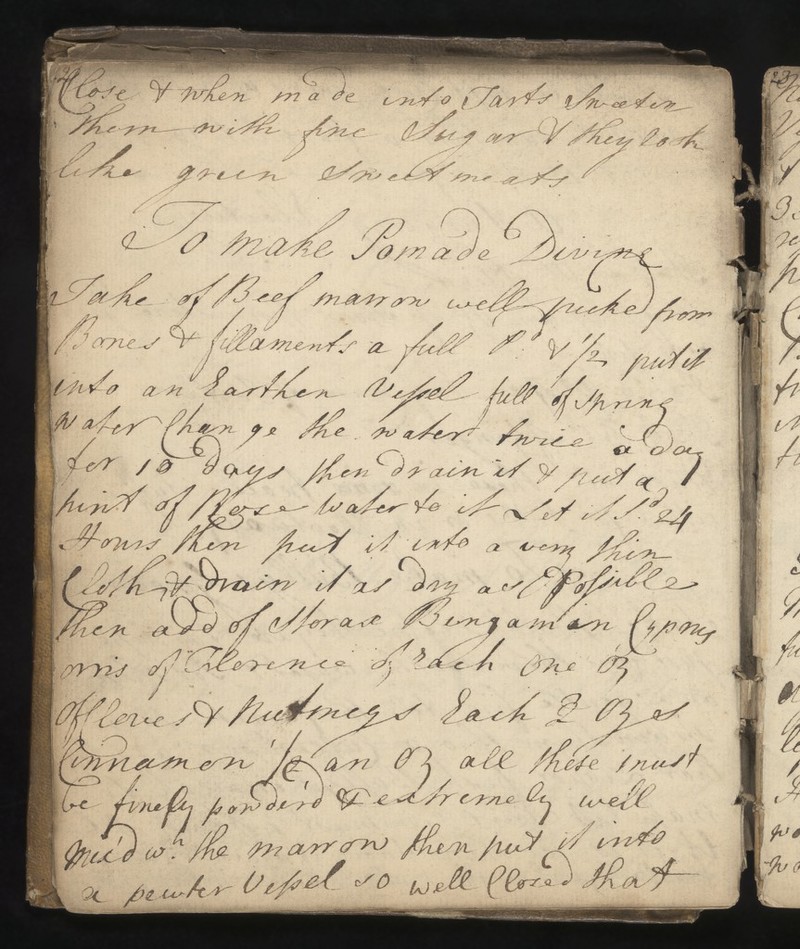 Close & when made into Tarts Sweeten
them with fine Sugar & they look
like green Sweetmeats
To make Pomade Divine
Take of Beef marrow well picked from
Bones & fillaments a full P.d & 1/2 put it
into an Earthen Vessel full of spring
water Change the water twice a day
for 10 Days then drain it & put a
pint of Rose water to it Let it S.d 24
Hours then put it into a very thin
Cloth & drain it as dry as Possible
then add of Storax Bengamin Cyprus
orris of Florence of Each One Oz
of Cloves & Nutmegs Each Ozs
Cinnamon 1/2 an Oz all these must
be finely powder'd & extremely well
mix'd w.h the marrow then put it into
a pewter Vessel so well Closed that